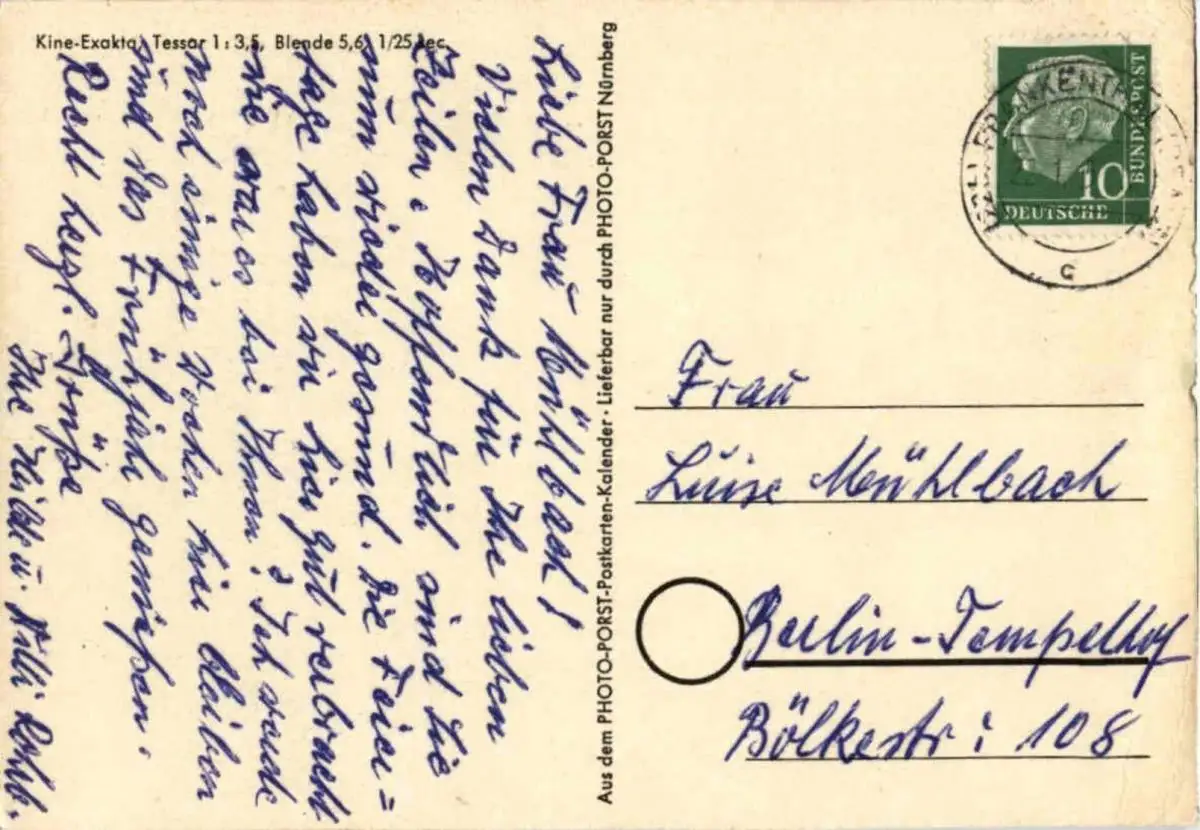 Kine-Exakta, Tessar 1:3,5, Blende 5,6, 1/25 sec.
Liebe Frau Mühlbach!
Vielen Dank für Ihre lieben
Zeilen. Hoffentlich sind Sie
nun wieder gesund. Die Feier=
tage haben wir hier gut verbracht
wie war es bei Ihnen? Ich werde
noch einige Wochen hier bleiben
und das Frühjahr genießen.
Recht herzl. Grüße
Ihre u. Willi
Aus dem PHOTO-PORST-Postkarten-Kalender · Lieferbar nur durch PHOTO-PORST Nürnberg
DEUTSCHE
BUNDESPOST
10
c
Frau
Luise Mühlbach
Berlin-Tempelhof
Bölkestr: 108